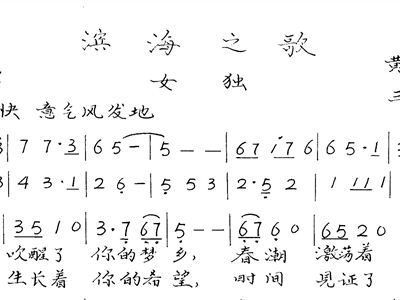 滨海之歌
女独
黄
快 意气风发地
3 | 7 7·3 | 6 5 - | 5 - - | 67 i·7 6 | 6 5·1 |
3 | 4 3·1 | 2 6 - | 5 5 3 | 2·5 2 | 1 111 |
| 35 1 0 | 3·7 67 | 5 - - | 67 6 0 | 65 2 0
吹醒了 你的梦乡, 春潮 激荡着
生长着 你的希望, 时间 见证了